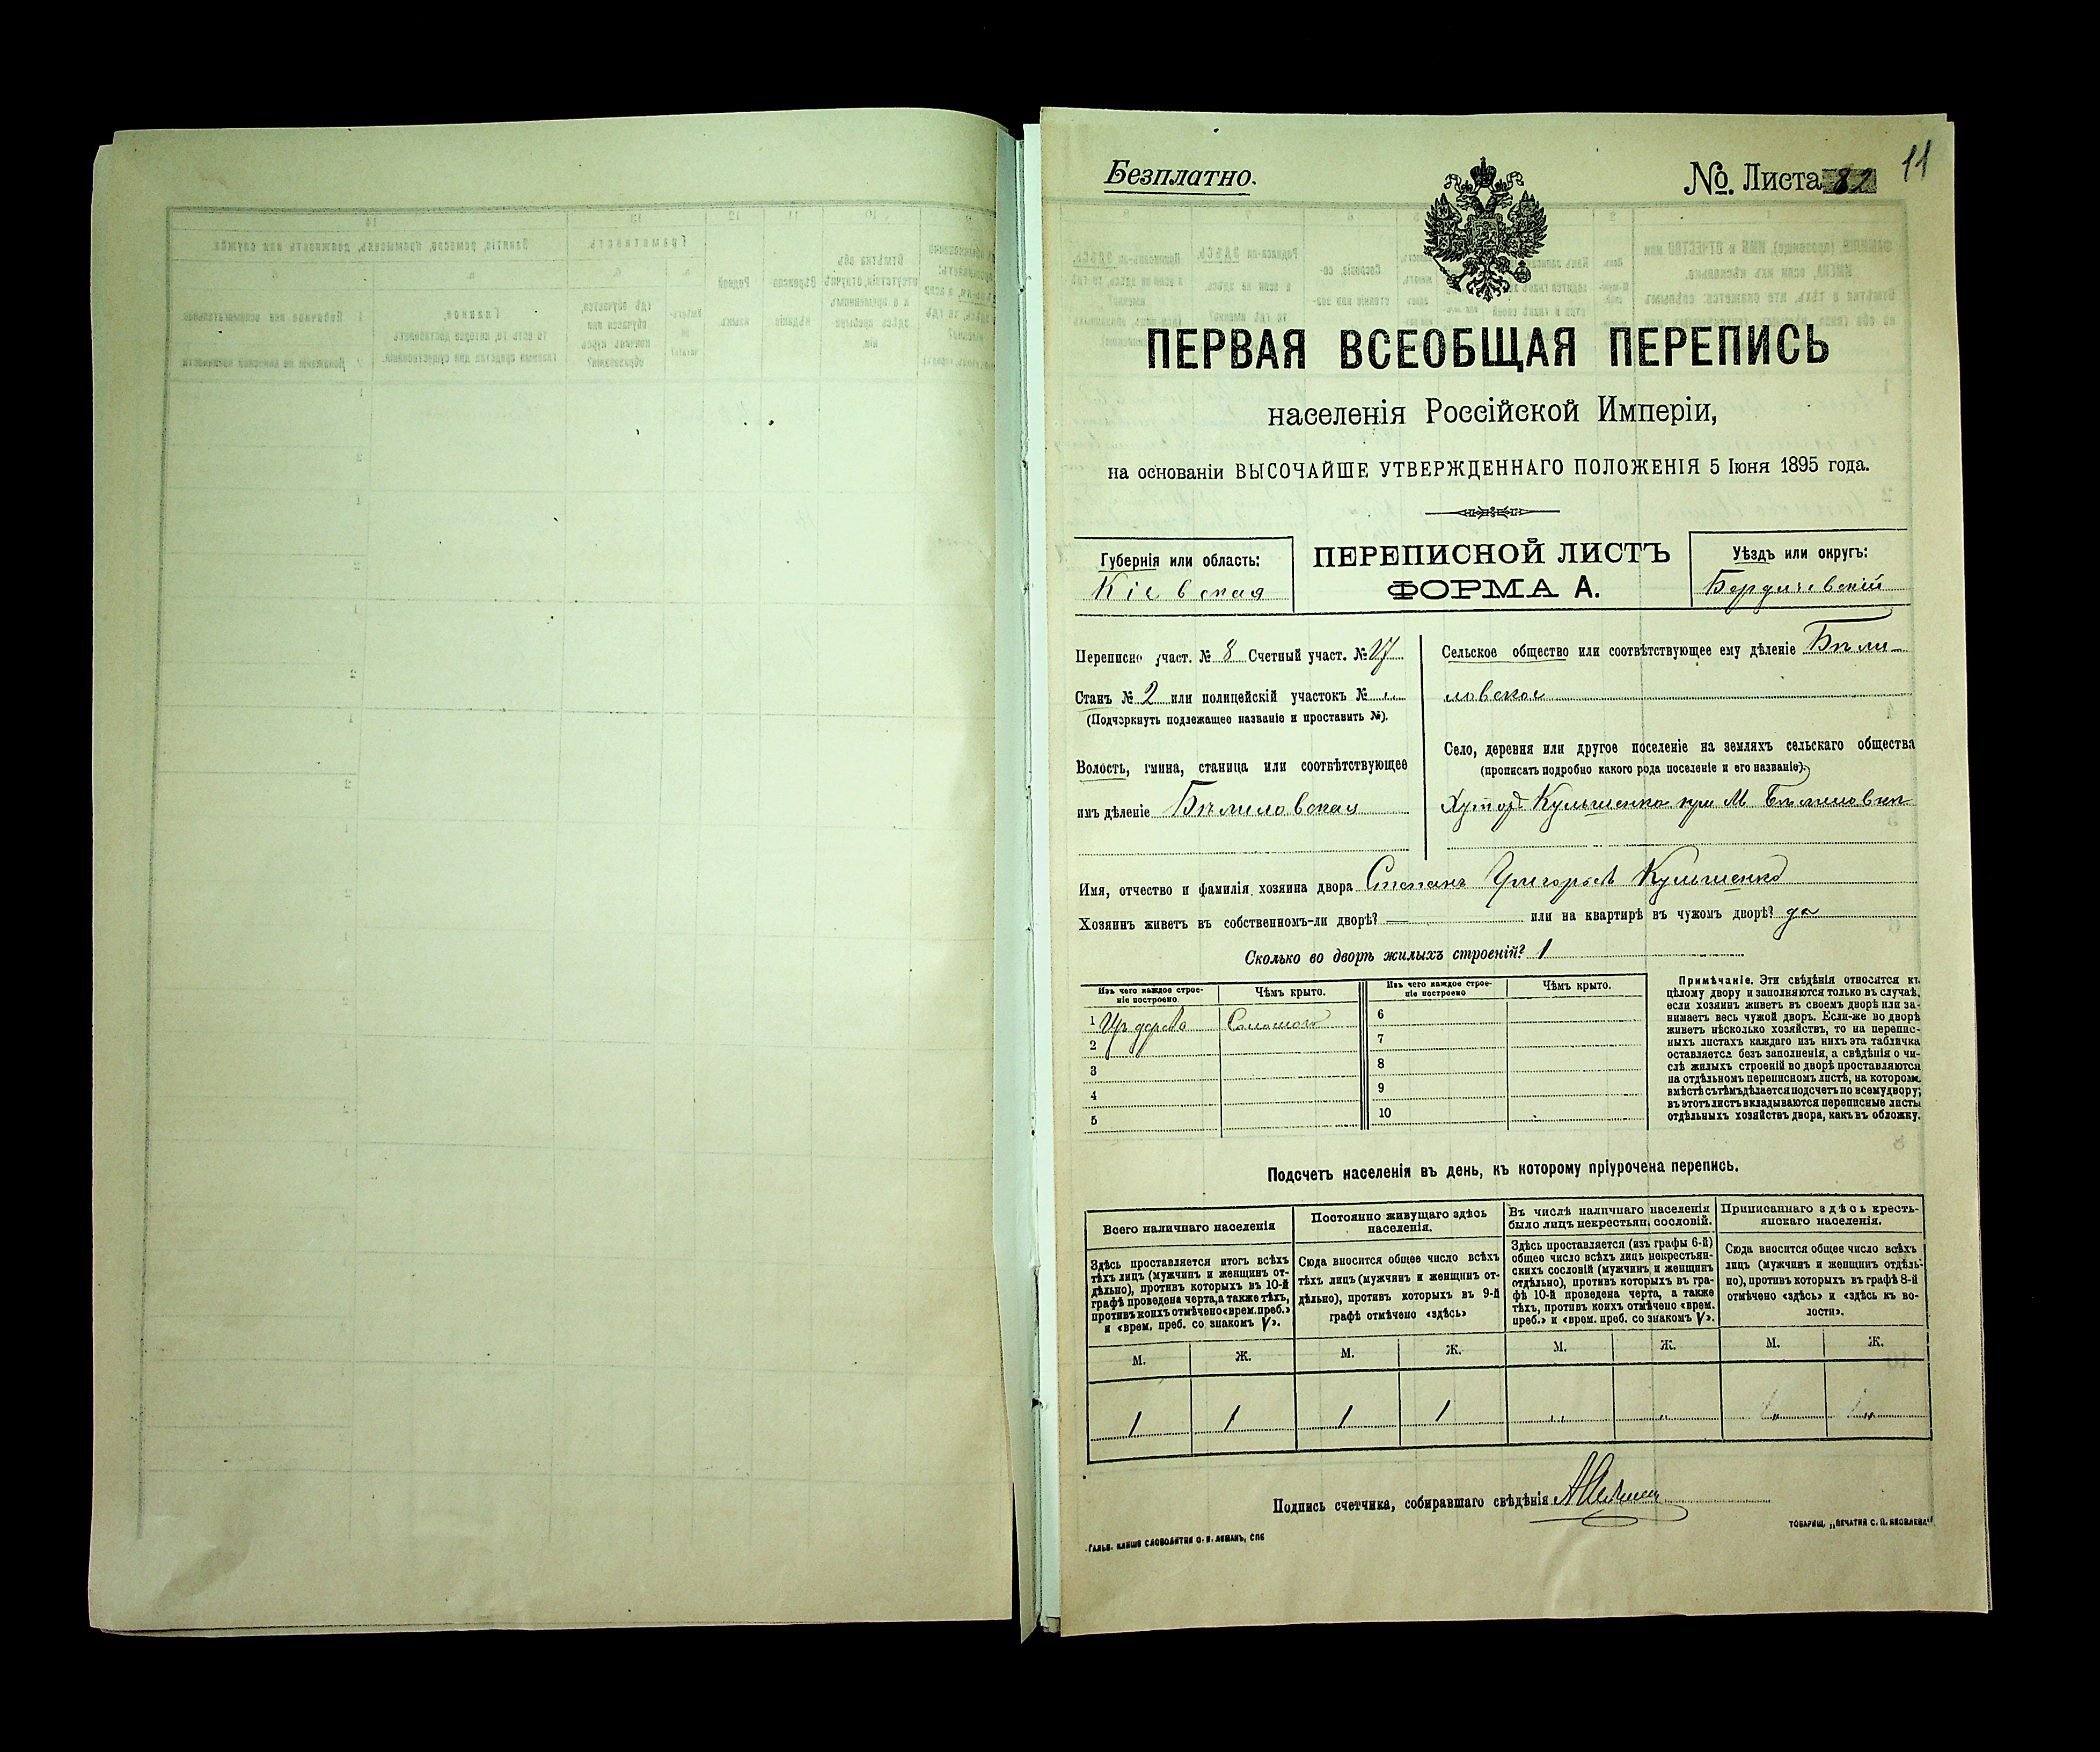 11
Безплатно.
№. Листа 82
ПЕРВАЯ ВСЕОБЩАЯ ПЕРЕПИСЬ
населенія Россійской Имперіи,
на основаніи ВЫСОЧАЙШЕ УТВЕРЖДЕННАГО ПОЛОЖЕНІЯ 5 Іюня 1895 года.
Губернія или область:
Кіевская
ПЕРЕПИСНОЙ ЛИСТЪ
ФОРМА А.
Уѣздъ или округъ:
Бердичевскій
Переписно участ. № 8 Счетный участ. №
Станъ № 2 или полицейскій участокъ № „
(Подчеркнуть подлежащее названіе и проставить №).
Волость, гмина, станица или соотвѣтствующее
имъ дѣленіе Бѣлиловская
Сельское общество или соотвѣтствующее ему дѣленіе Бѣли-
ловское
Село, деревня или другое поселеніе на земляхъ сельскаго общества
(прописать подробно какого рода поселеніе и его названіе).
Хуторъ Кульшенко при М Бѣлиловкѣ
Имя, отчество и фамилія хозяина двора Степанъ Григорьев Кульшенко
Хозяинъ живетъ въ собственномъ-ли дворѣ? — или на квартирѣ въ чужомъ дворѣ? да
Сколько во дворѣ жилыхъ строеній? 1
Изъ чего каждое строе-
ніе построено
Чѣмъ крыто.
Изъ чего каждое строе-
ніе построено
Чѣмъ крыто.
1 Изъ дерева Соломою
2
3
4
5
6
7
8
9
10
Примѣчаніе. Эти свѣдѣнія относятся къ
цѣлому двору и заполняются только въ случаѣ,
если хозяинъ живетъ въ своемъ дворѣ или за-
нимаетъ весь чужой дворъ. Если-же во дворѣ
живетъ нѣсколько хозяйствъ, то на перепис-
ныхъ листахъ каждаго изъ нихъ эта табличка
оставляется безъ заполненія, а свѣдѣнія о чи-
слѣ жилыхъ строеній во дворѣ проставляются
на отдѣльномъ переписномъ листѣ, на которомъ
вмѣстѣ съ тѣмъ дѣлается подсчетъ по всему двору;
въ этотъ листъ вкладываются переписные листы
отдѣльныхъ хозяйствъ двора, какъ въ обложку.
Подсчетъ населенія въ день, къ которому пріурочена перепись.
Всего наличнаго населенія
Здѣсь проставляется итогъ всѣхъ
тѣхъ лицъ (мужчинъ и женщинъ от-
дѣльно), противъ которыхъ въ 10-й
графѣ проведена черта, а также тѣхъ,
противъ коихъ отмѣчено «врем. преб.»
и «врем. преб. со знакомъ V».
Постоянно живущаго здѣсь
населенія.
Сюда вносится общее число всѣхъ
тѣхъ лицъ (мужчинъ и женщинъ от-
дѣльно), противъ которыхъ въ 9-й
графѣ отмѣчено «здѣсь»
Въ числѣ наличнаго населенія
было лицъ некрестьян. сословій.
Здѣсь проставляется (изъ графы 6-й)
общее число всѣхъ лицъ некрестьян-
скихъ сословій (мужчинъ и женщинъ
отдѣльно), противъ которыхъ въ гра-
фѣ 10-й проведена черта, а также
тѣхъ, противъ коихъ отмѣчено «врем.
преб.» и «врем. преб. со знакомъ V».
Приписаннаго здѣсь кресть-
янскаго населенія.
Сюда вносится общее число всѣхъ
лицъ (мужчинъ и женщинъ отдѣль-
но), противъ которыхъ въ графѣ 8-й
отмѣчено «здѣсь» и «здѣсь къ во-
лости».
М. Ж. М. Ж. М. Ж. М. Ж.
1 1 1 1 „ „ „ „
Подпись счетчика, собиравшаго свѣдѣнія
Гальв. клише словолитни О. И. Леманъ, СПБ
Товарищ. „Печатня С. П. Яковлева“